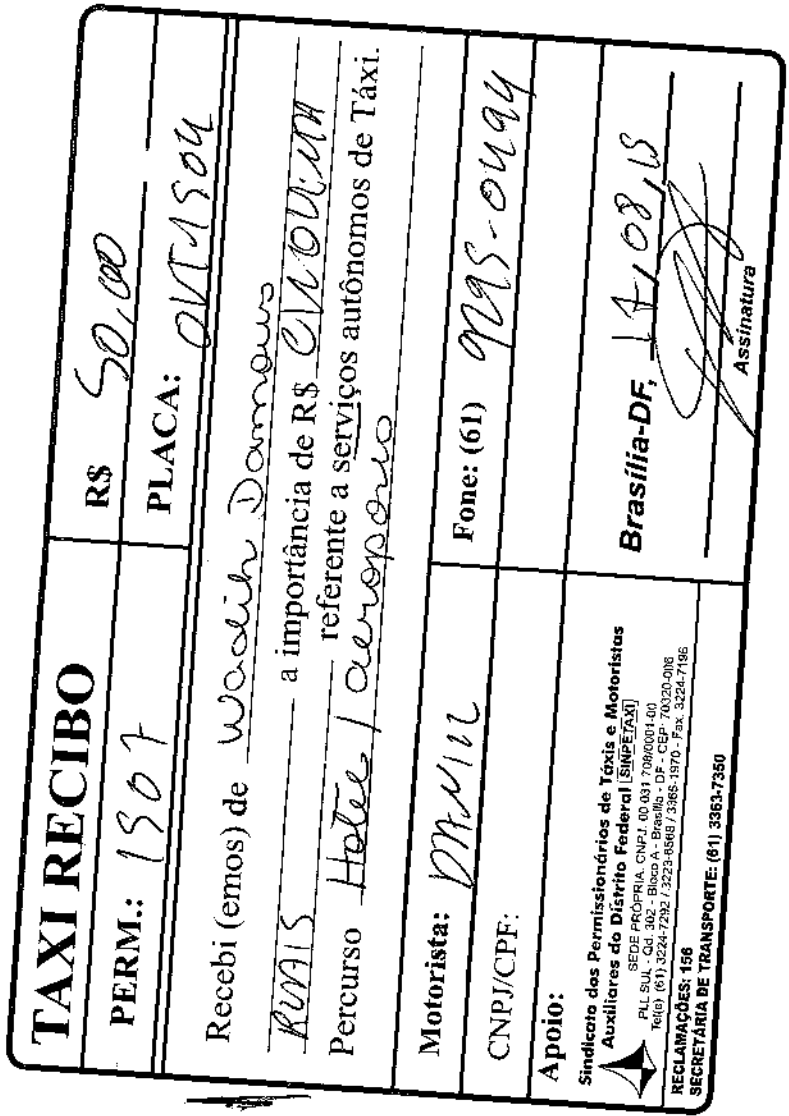 TAXI RECIBO
R$ 50,00
PERM.: 1507
PLACA:
Recebi (emos) de Wadih Damous
a importância de R$
referente a serviços autônomos de Táxi.
Percurso Hotel / aeroporto
Motorista:
Fone: (61) 9295-0494
CNPJ/CPF:
Apoio:
Brasília-DF, 17,08,15
Assinatura
Sindicato dos Permissionários de Táxis e Motoristas
Auxiliares do Distrito Federal [SINPETAXI]
SEDE PRÓPRIA. CNPJ. 00 031 708/0001-00
PLL SUL - Qd. 302 - Bloco A - Brasília - DF - CEP:
Tel(s) (61) 3224-7292 / 3223-6568 / 3365-1970 - Fax. 3224-7196
RECLAMAÇÕES: 156
SECRETÁRIA DE TRANSPORTE: (61) 3363-7350